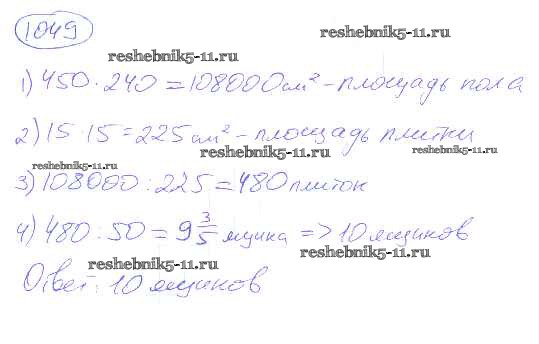 1049
reshebnik5-11.ru
reshebnik5-11.ru
1) 450 · 240 = 108000 см² - площадь пола
2) 15 · 15 = 225 см² - площадь плитки
reshebnik5-11.ru
reshebnik5-11.ru
reshebnik5-11.ru
3) 108000 : 225 = 480 плиток
4) 480 : 50 = 9 3/5 ящика => 10 ящиков
reshebnik5-11.ru
reshebnik5-11.ru
Ответ: 10 ящиков